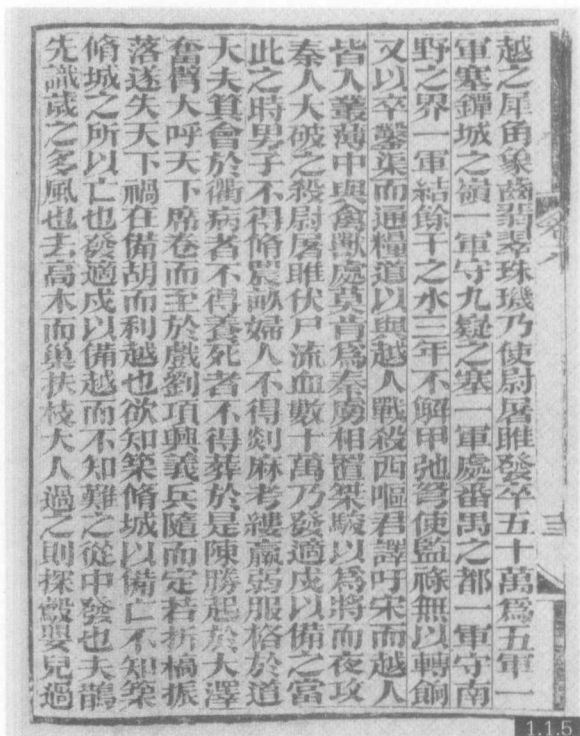 越之犀角象齒翡翠珠璣乃使尉屠睢發卒五十萬爲五軍一
軍塞鐔城之嶺一軍守九嶷之塞一軍處番禺之都一軍守南
野之界一軍結餘干之水三年不解甲弛弩使監祿無以轉餉
又以卒鑿渠而通糧道以與越人戰殺西嘔君譯吁宋而越人
皆入叢薄中與禽獸處莫肯爲秦虜相置桀駿以爲將而夜攻
秦人大破之殺尉屠睢伏尸流血數十萬乃發適戍以備之當
此之時男子不得脩農畝婦人不得剡麻考縷羸弱服格於道
大夫箕會於衢病者不得養死者不得葬於是陳勝起於大澤
奮臂大呼天下席卷而至於戲劉項興義兵隨而定若折槁振
落遂失天下禍在備胡而利越也欲知築脩城以備亡不知築
脩城之所以亡也發適戍以備越而不知難之從中發也夫鵲
先識歲之多風也去高木而巢扶枝大人過之則探鷇嬰兒過
1.1.5